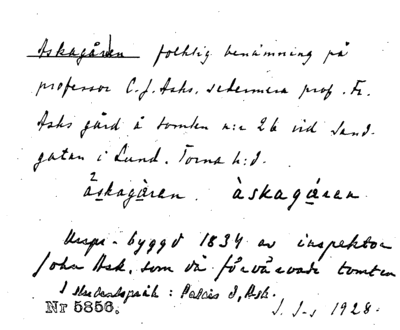 Askagåren folklig benämning på
professor C. J. Asks, sedermera prof. Fr.
Asks gård å tomten n:r 26 vid Sand-
gatan i Lund. Torna h:d.
åskagåren. àskagåren.
Urspr. byggd 1834 av inspektor
John Ask, som då förvärvade tomten
I studentspråk: Palais d'Ask.
Nr 5856. J. S-s 1928.